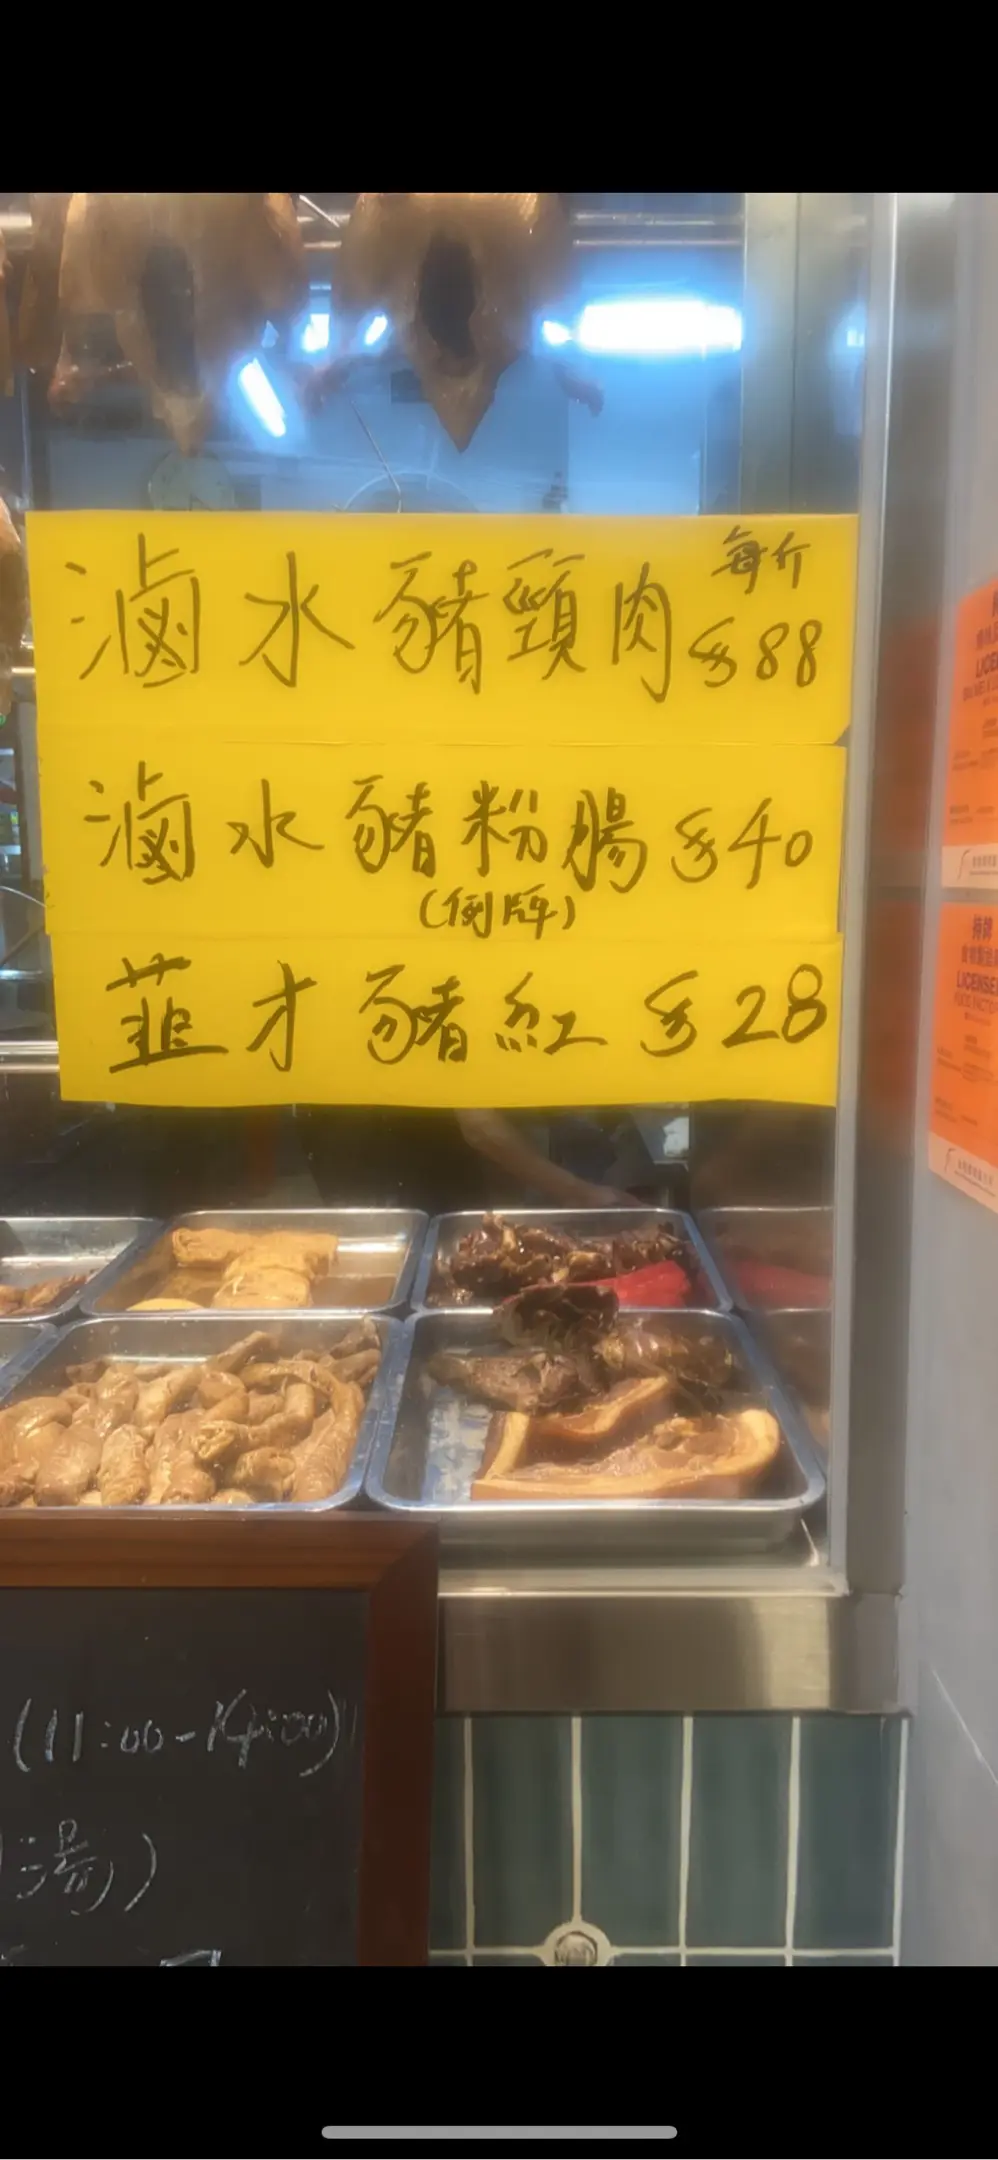 每斤
滷水豬頸肉 $88
滷水豬粉腸 $40
(例牌)
韮才豬紅 $28
持牌
LICENSE
(11:00-14:00)
湯)